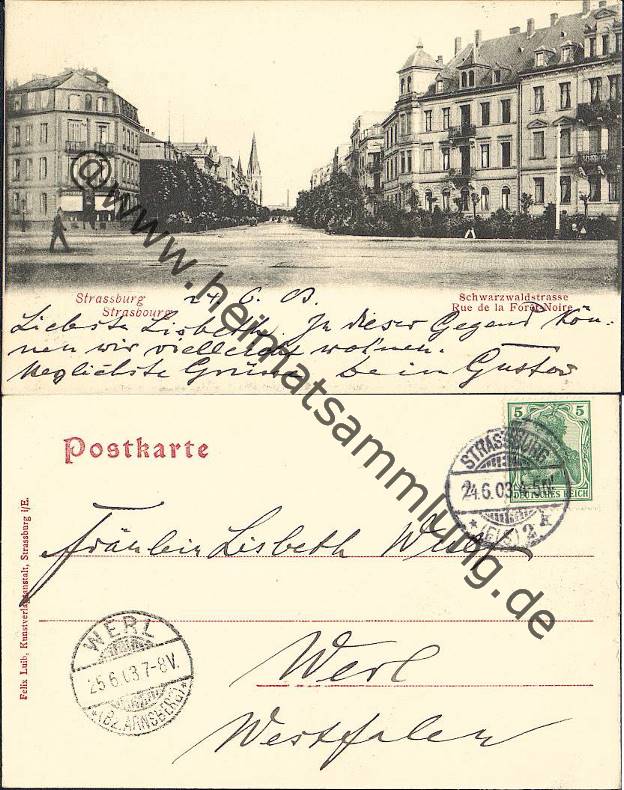 Strassburg
Strasbourg
24.6.03
Schwarzwaldstrasse
Rue de la Forêt-Noire
Liebste Lisbeth. In dieser Gegend kön-
nen wir vielleicht wohnen.
Herzlichste Grüsse Dein Gustav
© www.heimatsammlung.de
Postkarte
5 5
DEUTSCHES REICH
STRASSBURG
24.6.03 4-5N.
* (ELS.) 2 k
Fräulein Lisbeth
WERL
25.6.03 7-8V.
* (BZ. ARNSBERG) *
Werl
Westfalen
Felix Luib, Kunstverlagsanstalt, Strassburg i/E.